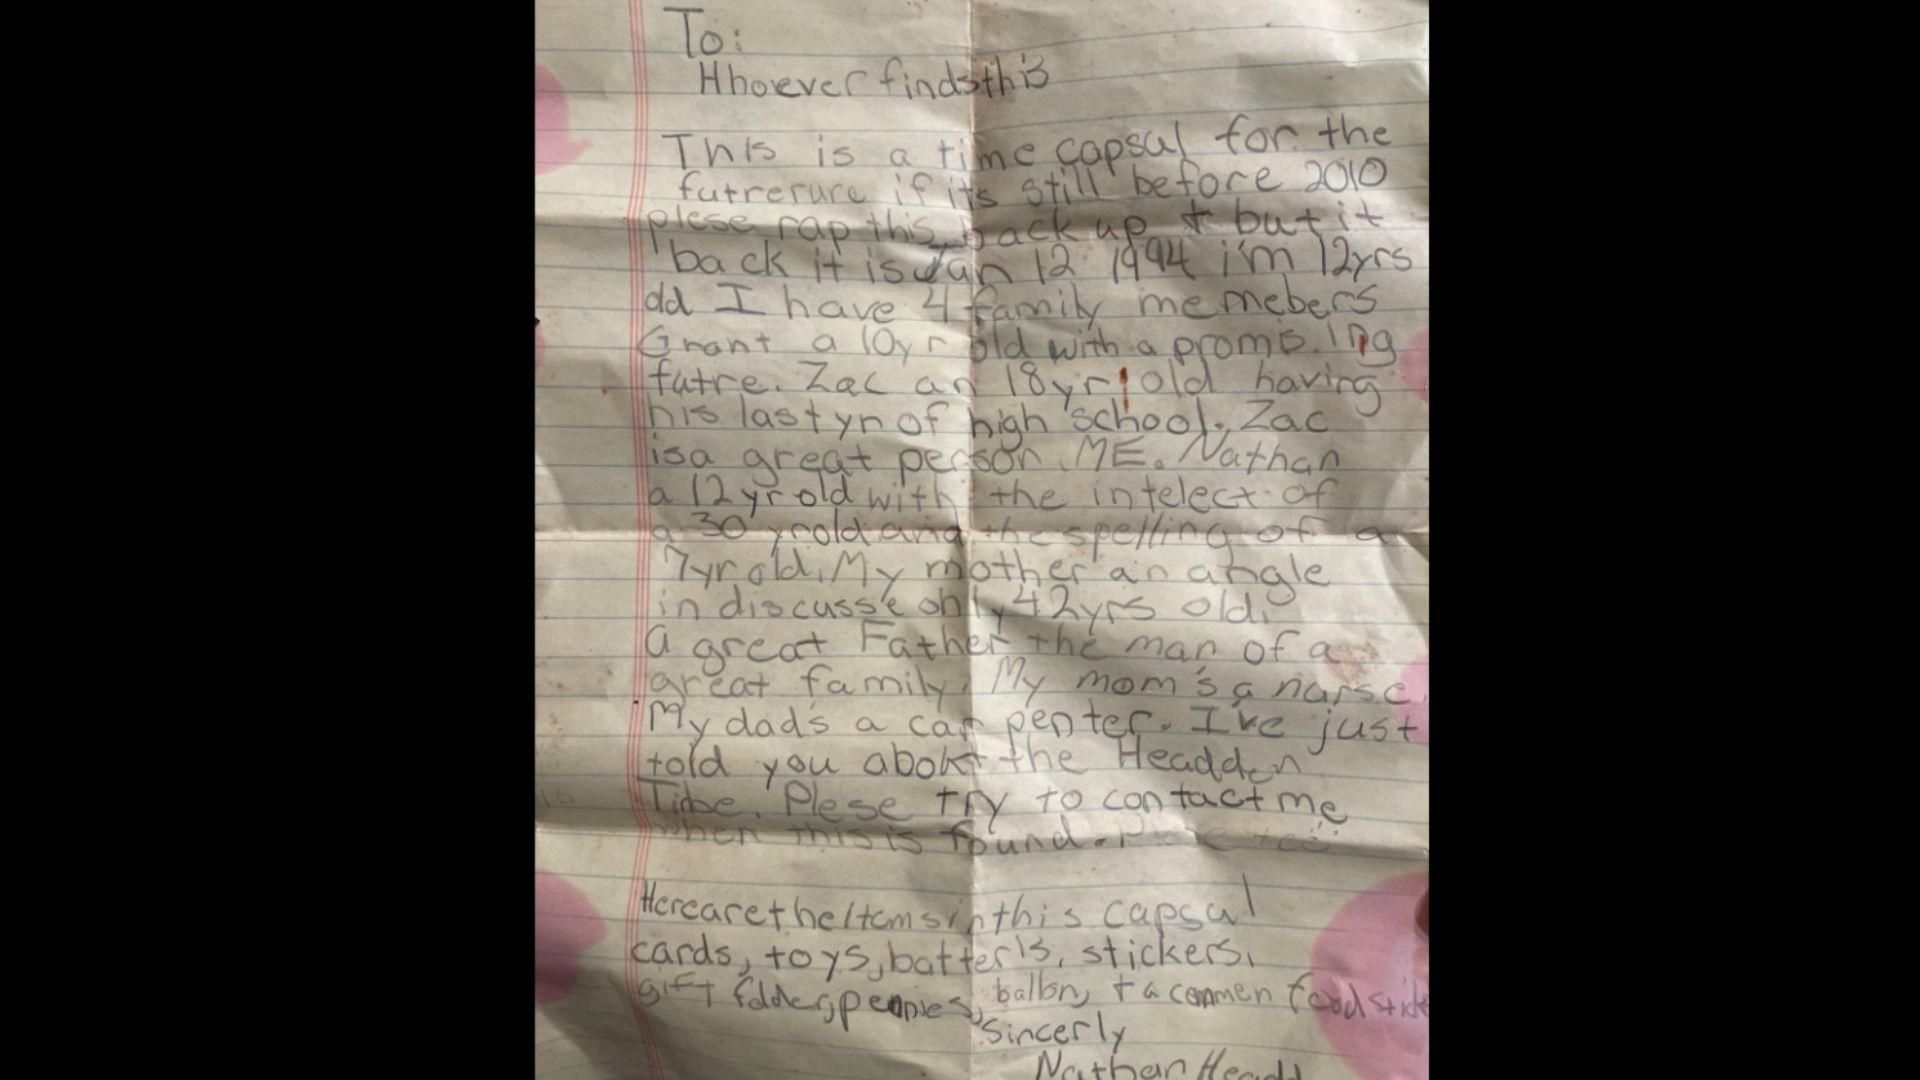 To:
Hhoever finds this
This is a time capsal for the
futrerure if its still before 2010
plese rap this back up + but it
back it is Jan 12 1994 i'm 12yrs
old I have 4 family memebers
Grant a 10yr old with a promising
futre. Zac an 18yr old having
his last yr of high school. Zac
is a great person. ME. Nathan
a 12yr old with the intelect of
a 30 yr old and the spelling of a
7yr old. My mother an angle
in discusse only 42yrs old.
a great Father the man of a
great family. My mom's a nurse.
My dad's a carpenter. I've just
told you about the Headden
Tribe. Plese try to contact me
when this is found.
Here are the Items in this capsal
cards, toys, batteris, stickers,
gift folder, pennies, ballon, + a commen food
Sincerly
Nathan Headd